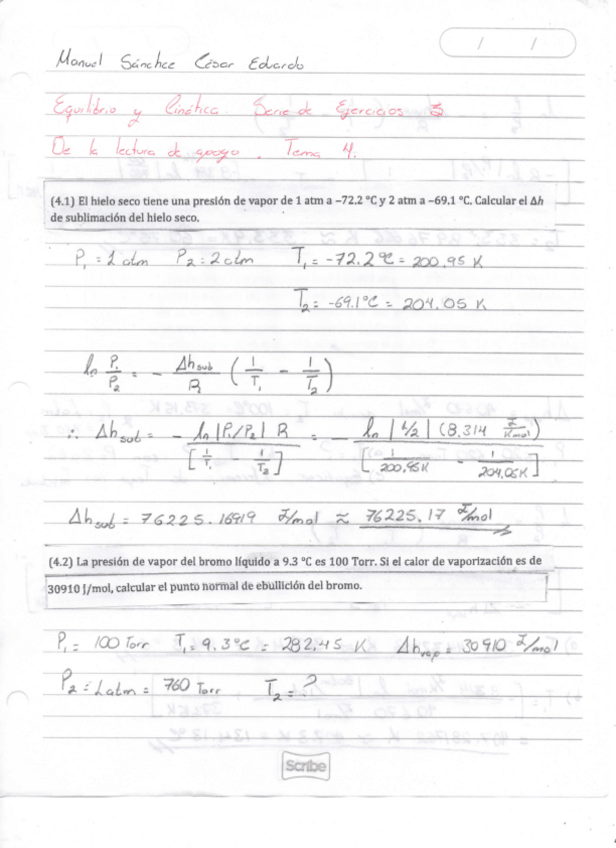 / /
Manuel Sánchez César Eduardo
Equilibrio y Cinética. Serie de Ejercicios 3
De la lectura de apoyo. Tema 4.
(4.1) El hielo seco tiene una presión de vapor de 1 atm a −72.2 °C y 2 atm a −69.1 °C. Calcular el Δh
de sublimación del hielo seco.
P₁ = 1 atm P₂ = 2 atm T₁ = -72.2 °C = 200.95 K
T₂ = -69.1°C = 204.05 K
ln P₁/P₂ = - Δh_sub/R (1/T₁ - 1/T₂)
∴ Δh_sub = - ln|P₁/P₂| R / [1/T₁ - 1/T₂] = - ln|1/2| (8.314 J/Kmol) / [1/200.95K - 1/204.05K]
Δh_sub = 76225.16919 J/mol ≈ 76225.17 J/mol
(4.2) La presión de vapor del bromo líquido a 9.3 °C es 100 Torr. Si el calor de vaporización es de
30910 J/mol, calcular el punto normal de ebullición del bromo.
P₁ = 100 Torr T₁ = 9.3°C = 282.45 K Δh_vap = 30910 J/mol
P₂ = 1 atm = 760 Torr T₂ = ?
Scribe